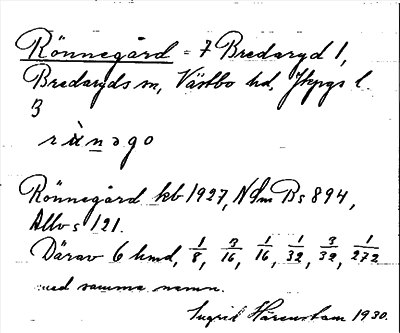 Rönnegård = 7 Bredaryd 1,
Bredaryds sn, Västbo hd, Jkpgs l.
3
rὰnəgo
Rönnegård kb 1927, Ndm Bs 894,
Allv s 121.
Därav 6 hmd, 1/8, 3/16, 1/16, 1/32, 3/32, 1/272
med samma namn.
Ingrid Härenstam 1930.